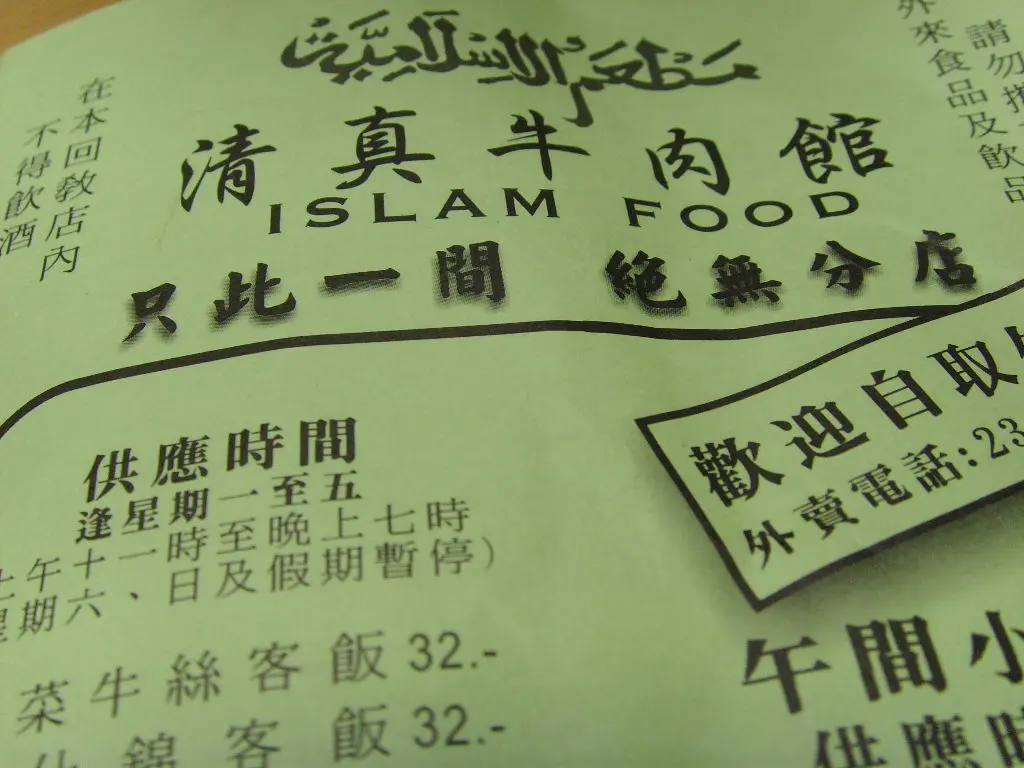 مطعم الإسلامية
清真牛肉館
ISLAM FOOD
只此一間 絕無分店
在本回教店內
不得飲酒
請勿攜
外來食品及飲品
歡迎自取
外賣電話:23
供應時間
逢星期一至五
上午十一時至晚上七時
星期六、日及假期暫停)
菜牛絲客飯 32.-
什錦客飯 32.-
午間小
供應時